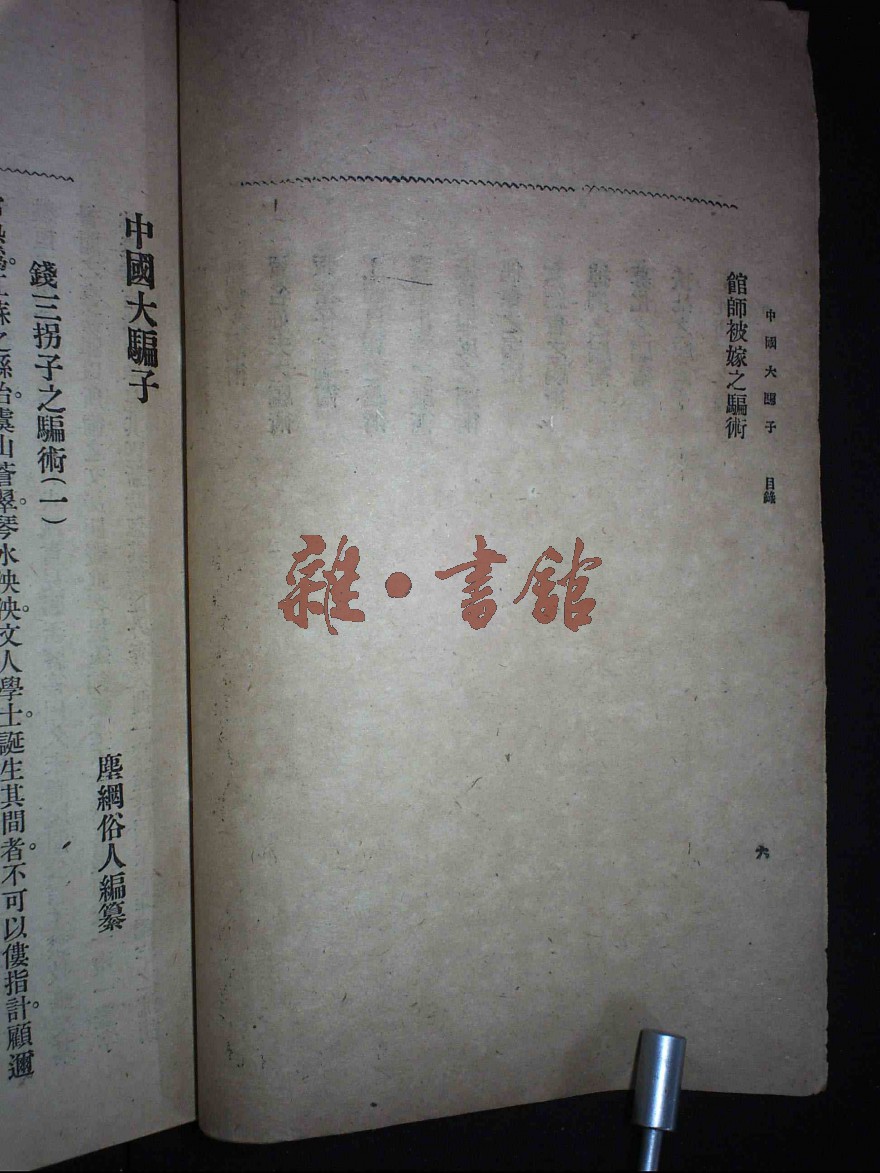 中國大騙子 目錄
館師被嫁之騙術
六
雜•書館
中國大騙子
塵網俗人編纂
錢三拐子之騙術(一)
蘇之縣治。虞山蒼翠。琴水泱泱。文人學士。誕生其間者。不可以僂指計。顧邇